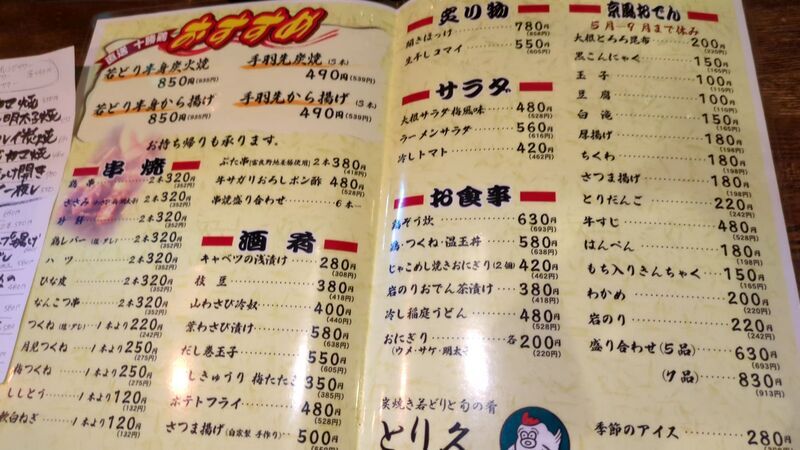 直送 十勝鶏 おすすめ
若どり半身炭火焼 850円(935円)
手羽先炭焼(3本) 490円(539円)
若どり半身から揚げ 850円(935円)
手羽先から揚げ(3本) 490円(539円)
お持ち帰りも承ります。
串焼
鶏串 2本320円(352円)
ささみ 2本320円(352円)
2本320円(352円)
鶏レバー(塩・タレ) 2本320円(352円)
ハツ 2本320円(352円)
ひな皮 2本320円(352円)
なんこつ串 2本320円(352円)
つくね(塩・タレ) 1本より220円(242円)
月見つくね 1本より250円(275円)
梅つくね 1本より250円(275円)
ししとう 1本より120円(132円)
軟白ねぎ 1本より120円(132円)
ぶた串(富良野地養豚使用) 2本380円(418円)
牛サガリおろしポン酢 480円(528円)
串焼盛り合わせ 6本
酒肴
キャベツの浅漬け 280円(308円)
枝豆 380円(418円)
山わさび冷奴 400円(440円)
葉わさび漬け 580円(638円)
だし巻玉子 550円(605円)
しきゅうり 梅たたき 350円(385円)
ポテトフライ 480円(528円)
さつま揚げ(自家製 手作り) 500円
炙り物
開きほっけ 780円
生干しコマイ 550円
サラダ
大根サラダ梅風味 480円(528円)
ラーメンサラダ 560円(616円)
冷しトマト 420円(462円)
お食事
鶏ぞう炊 630円(693円)
鶏・つくね・温玉丼 580円(638円)
じゃこめし焼きおにぎり(2個) 420円(462円)
岩のりおでん茶漬け 380円(418円)
冷し稲庭うどん 480円(528円)
おにぎり 各200円(220円)
(ウメ・サケ・明太子)
炭焼き若どりと旬の肴
とり久
京風おでん
5月~9月まで休み
大根とろろ昆布 200円(220円)
黒こんにゃく 150円(165円)
玉子 100円(110円)
豆腐 150円(165円)
白滝 100円(110円)
厚揚げ 180円(198円)
ちくわ 180円(198円)
さつま揚げ 180円(198円)
とりだんご 220円(242円)
牛すじ 480円(528円)
はんぺん 180円(198円)
もち入りきんちゃく 150円(165円)
わかめ 200円(220円)
岩のり 220円(242円)
盛り合わせ(5品) 630円(693円)
(7品) 830円(913円)
季節のアイス 280円